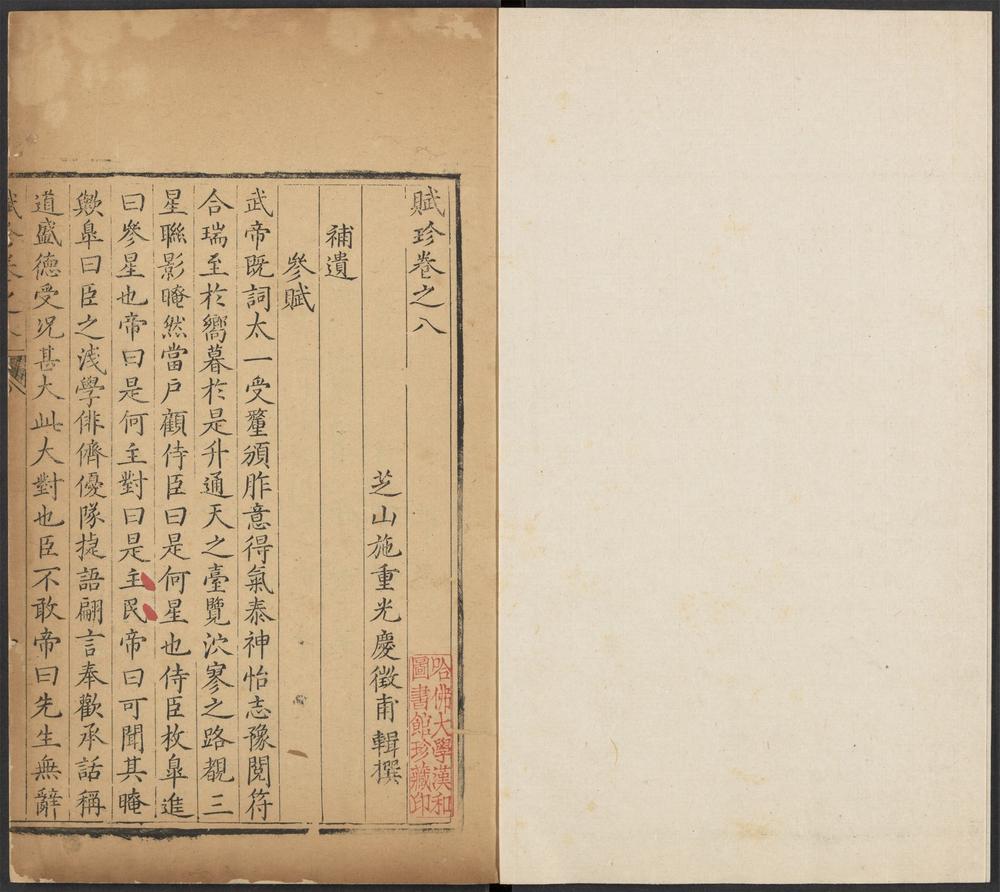 賦珍卷之八
芝山施重光慶徵甫輯撰
補遺
參賦
武帝既詞太一受釐頒胙意得氣泰神怡志豫閱符
合瑞至於嚮暮於是升通天之臺覽泬寥之路覩三
星聯影晻然當户顧侍臣曰是何星也侍臣枚臯進
曰參星也帝曰是何主對曰是主民帝曰可聞其晻
歟臯曰臣之淺學俳儕優隊捷語翩言奉歡承話稱
道盛德受况甚大此大對也臣不敢帝曰先生無辭
賦珍卷之八
哈佛大學漢和
圖書館珍藏印